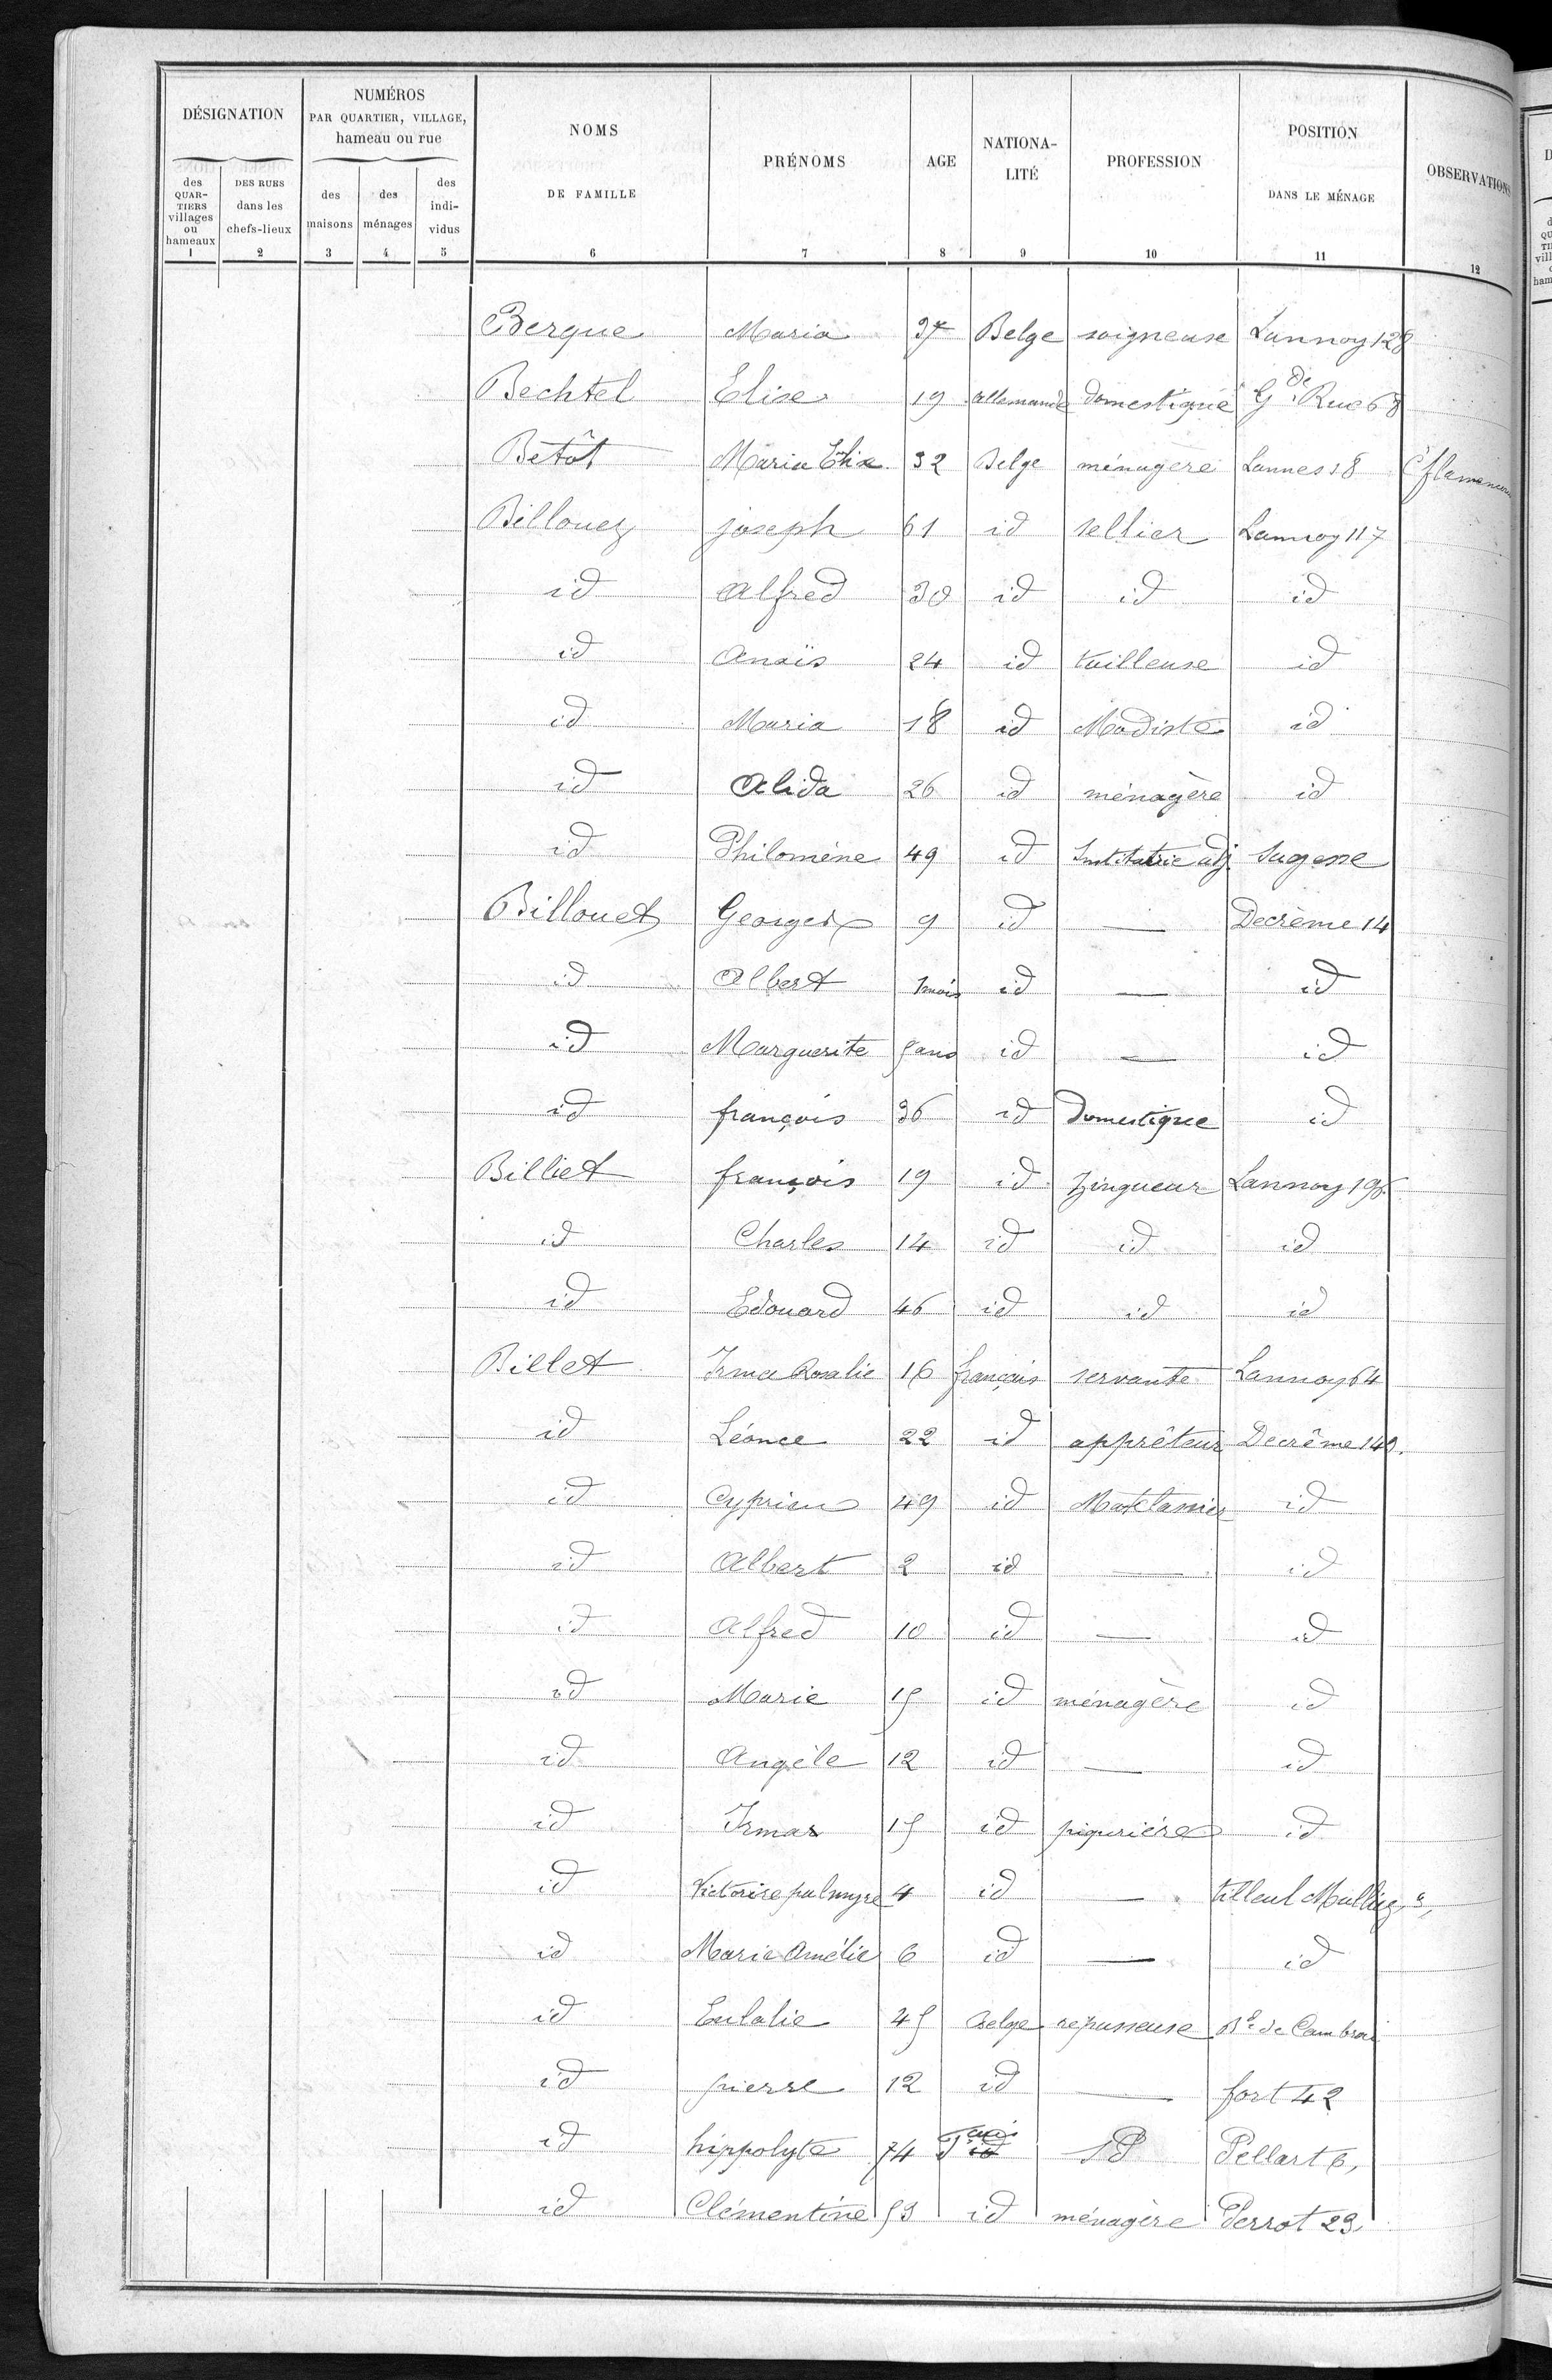 DÉSIGNATION
NUMÉROS PAR QUARTIER, VILLAGE, hameau ou rue
NOMS DE FAMILLE
PRÉNOMS
AGE
NATIONA-LITÉ
PROFESSION
POSITION DANS LE MÉNAGE
OBSERVATIONS
des QUAR-TIERS villages ou hameaux
DES RUES dans les chefs-lieux
des maisons
des ménages
des indi-vidus
1 2 3 4 5 6 7 8 9 10 11 12
Berque Maria Belge soigneuse Lannoy 128
Bechtel Elise 19 allemande domestique Gde Rue 68
Betôt Maria Elix 32 Belge ménagère Lannes 18
Billouez joseph 61 id sellier Lannoy 117
id Alfred 30 id id id
id Anaïs 24 id tailleuse id
id Maria 18 id Modiste id
id Alida 26 id ménagère id
id Philomène 49 id Institutrice adj. Sagesse
Billouet Georges 9 id — Decrème 14
id Albert 1 mois id — id
id Marguerite 5 ans id — id
id françois 36 id Domestique id
Billiet françois 19 id Zingueur Lannoy 196
id Charles 14 id id id
id Edouard 46 id id id
Billet Irma Rosalie 16 français servante Lannoy 64
id Léonce 22 id apprêteur Decrême 140.
id Cyprien 49 id Matelassier id
id Albert 2 id — id
id Alfred 10 id — id
id Marie 15 id ménagère id
id Angèle 12 id — id
id Irma 15 id piqurière id
id Victorise palmyre 4 id — tilleul Mulliez
id Marie Amélie 6 id — id
id Eulalie 45 Belge repasseuse Bd de Cambrai
id pierre 12 id — fort 42
id hippolyte 74 id SP Pellart 6,
id Clémentine 53 id ménagère Perrot 23